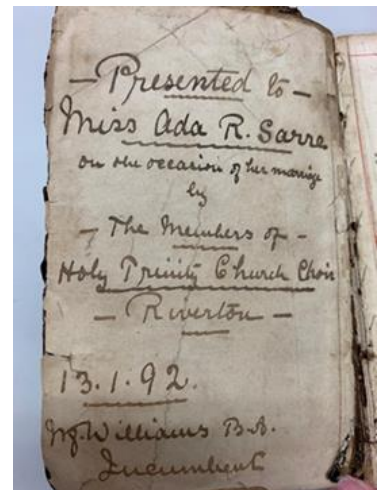 — Presented to —
Miss Ada R. Sarre
on the occasion of her marriage
by
— The Members of —
Holy Trinity Church Choir
— Riverton —
13.1.92.
Williams B.A.
Incumbent